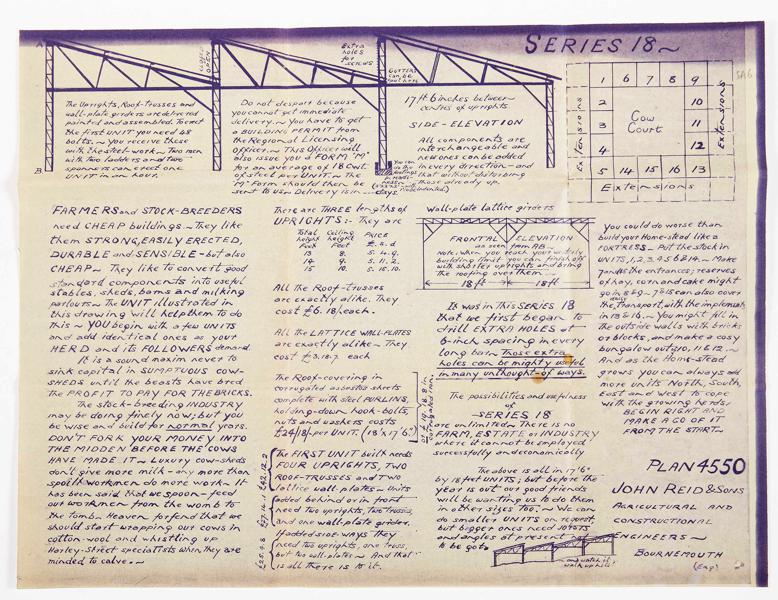 SERIES 18~
A
B
CLOSED
OPEN
Extra
holes
for
screws
GUTTERS
can be
fixed here
The Uprights, Roof-trusses and
wall-plate girders are delivered
painted and assembled. To erect
the first UNIT you need 48
bolts. ~ You receive these
with the steel-work. ~ Two men
with two ladders and two
spanners can erect one
UNIT in an hour.
Do not despair because
you cannot get immediate
delivery. ~ You have to get
a BUILDING PERMIT from
the Regional Licensing
Officer. ~ This Officer will
also issue you a FORM "M"
for an average of 18 Cwt.
of steel per UNIT. ~ The
"M" Form should then be
sent to us. Delivery is in ~ days
17 ft 6 inches between
centres of uprights
SIDE-ELEVATION
All components are
interchangeable and
new ones can be added
in every direction - and
that without disturbing
those already up.
1 6 7 8 9
2 10
3 11
4 12
5 14 15 16 13
Cow
Court
Extensions
Extensions
Extensions
FARMERS and STOCK-BREEDERS
need CHEAP buildings. ~ They like
them STRONG, EASILY ERECTED,
DURABLE and SENSIBLE - but also
CHEAP ~ They like to convert good
standard components into useful
stables, sheds, barns and milking
parlours. ~ The UNIT illustrated in
this drawing will help them to do
this ~ YOU begin with a few UNITS
and add identical ones as your
HERD and its FOLLOWERS demand.
It is a sound maxim never to
sink capital in SUMPTUOUS COW-
SHEDS until the beasts have bred
THE PROFIT TO PAY FOR THE BRICKS.
The stock-breeding INDUSTRY
may be doing finely now; but you
be wise and build for normal years.
DON'T FORK YOUR MONEY INTO
THE MIDDEN BEFORE THE COWS
HAVE MADE IT. ~ Luxury cow-sheds
don't give more milk - any more than
spoilt workmen do more work ~ It
has been said that we spoon-feed
our workmen from the womb to
the tomb. Heaven forfend that we
should start wrapping our cows in
cotton-wool and whistling up
Harley-Street specialists when they are
minded to calve. ~
There are THREE lengths of
UPRIGHTS :- They are
Total Ceiling PRICE
height height
Feet Feet £. s. d
13 8. 5. 4. 9.
14 9. 5. 11. 2.
15 10. 5. 15. 10.
All the Roof-trusses
are exactly alike. They
cost £6.18/. each.
All the LATTICE WALL-PLATES
are exactly alike ~ They
cost £3.18.7 each
The Roof-covering in
corrugated asbestos sheets
complete with steel PURLINS,
holding-down hook-bolts,
nuts and washers costs
£24/18/- per UNIT. (18' x 17'6")
The FIRST UNIT built needs
FOUR UPRIGHTS, TWO
ROOF-TRUSSES and TWO
lattice wall plates ~ Units
added behind or in front
need two uprights, two trusses,
and one wall-plate girder.
If added side-ways they
need two uprights, one truss,
but two wall-plates ~ And that
is all there is to it.
Wall-plate lattice girders
FRONTAL ELEVATION
as seen from AB ~
note: when you reach your
building limit you can finish off
with shorter uprights and bring
the roofing over them.
18 ft 18 ft
It was in This SERIES 18
that we first began to
drill EXTRA HOLES at
6-inch spacing in every
long bar. Those extra
holes can be mighty useful
in many unthought-of ways.
The possibilities and usefulness
of
~SERIES 18
are unlimited ~ There is no
FARM, ESTATE or INDUSTRY
where it cannot be employed
successfully and economically
The above is all in 17'6"
by 18 feet UNITS; but before the
year is out our good friends
will be wanting us to do them
in other sizes too. ~ We can
do smaller UNITS on request,
but bigger ones need ROOTS
and angles at present
to be got.
and watch it
walk up hills
You could do worse than
build your Home-stead like a
FORTRESS ~ Put the stock in
UNITS, 1, 2, 3, 4, 5, 6 & 14. ~ Make
7 and 15 the entrances; reserves
of hay, corn and cake might
go in 8 & 9. ~ 7 & 15 can also cover
the daily Transport, with the implements
in 13 & 16. ~ You might fill in
the outside walls with bricks
or blocks, and make a cosy
bungalow out of 10, 11 & 12. ~
And as the Home-stead
grows you can always add
more units North, South,
East and West to cope
with the growing herds.
BEGIN RIGHT AND
MAKE A GO OF IT
FROM THE START ~
PLAN 4550
JOHN REID & SONS
AGRICULTURAL AND
CONSTRUCTIONAL
ENGINEERS ~
BOURNEMOUTH
(Eng)